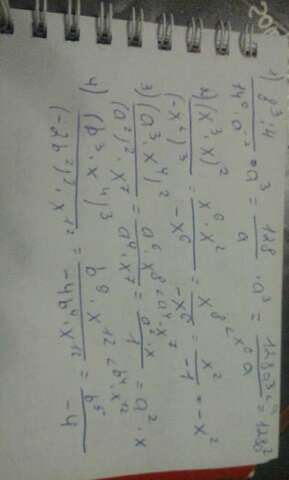 1) 8³·4 / 14⁰·a⁻² · a³ = 128 / a · a³ = 128a³<a / a = 128a²
2) (x³·x)² / (-x²)³ = x⁶·x² / -x⁶ = x⁸<x⁶ / -x⁶ = x² / -1 = -x²
3) (a³·x⁴)² / (a²)²·x⁷ = a⁶·x⁸<a⁴·x⁷ / a⁴·x⁷ = a²·x / 1 = a²·x
4) (b³·x⁴)³ / (-2b²)²·x¹² = b⁹·x¹²<b⁴·x¹² / -4b⁴·x¹² = b⁵ / -4